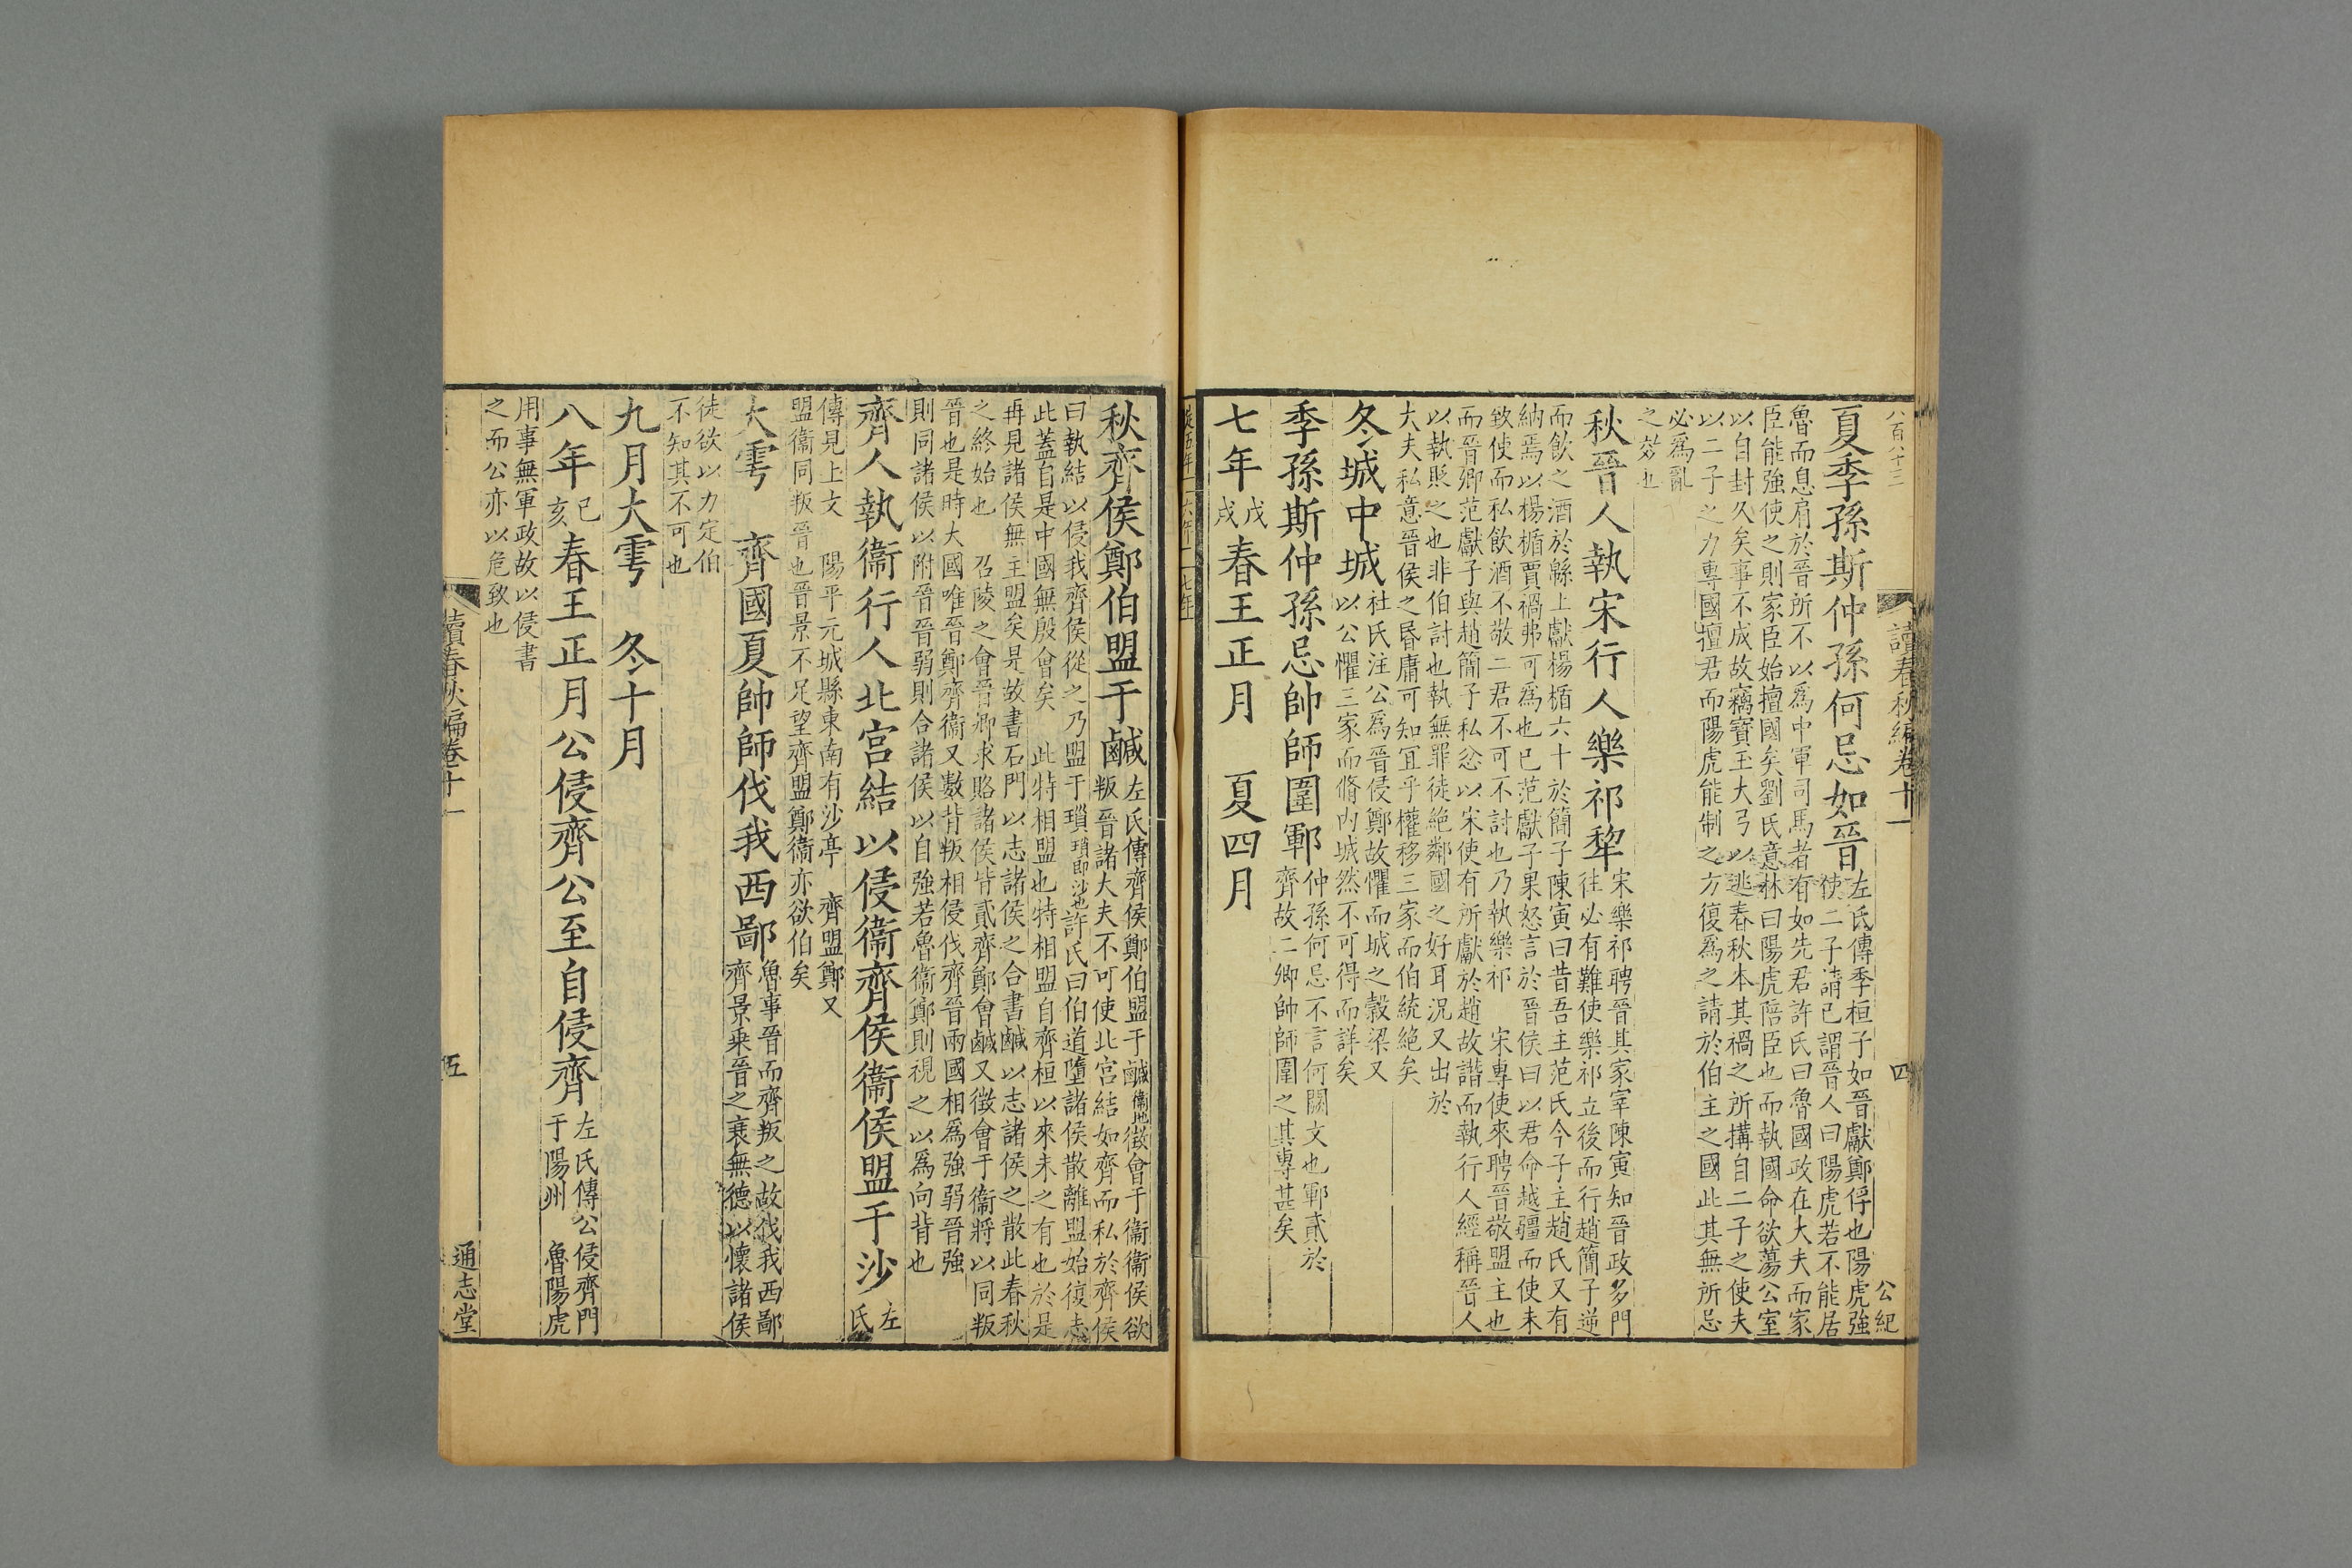 八百八十三　讀春秋編卷十一　四　公紀
夏季孫斯仲孫何忌如晉
左氏傳季桓子如晉獻鄭俘也陽虎強
使二子請已謂晉人曰陽虎若不能居
魯而息肩於晉所不以爲中軍司馬者有如先君許氏曰魯國政在大夫而家
臣能強使之則家臣始擅國矣劉氏意林曰陽虎陪臣也而執國命欲蕩公室
以自封久矣事不成故竊寶玉大弓以逃春秋本其禍之所搆自二子之使夫
以二子之力專國擅君而陽虎能制之方復爲之請於伯主之國此其無所忌
必爲亂
之效也
秋晉人執宋行人樂祁犂
宋樂祁聘晉其家宰陳寅知晉政多門
往必有難使樂祁立後而行趙簡子逆
而飲之酒於緜上獻楊楯六十於簡子陳寅曰昔吾主范氏今子主趙氏又有
納焉以楊楯賈禍弗可爲也已范獻子果怒言於晉侯曰以君命越疆而使未
致使而私飲酒不敬二君不可不討也乃執樂祁　宋專使來聘晉敬盟主也
而晉卿范獻子與趙簡子私忿以宋使有所獻於趙故譖而執行人經稱晉人
以執貶之也非伯討也執無罪徒絶鄰國之好耳況又出於
大夫私意晉侯之昬庸可知冝乎權移三家而伯統絶矣
冬城中城
杜氏注公爲晉侵鄭故懼而城之穀梁又
以公懼三家而脩内城然不可得而詳矣
季孫斯仲孫忌帥師圍鄆
仲孫何忌不言何闕文也鄆貳於
齊故二卿帥師圍之其專甚矣
七年戊戌春王正月　夏四月
五年　六年　七年
秋齊侯鄭伯盟于鹹
左氏傳齊侯鄭伯盟于鹹衞地徵會于衞衞侯欲
叛晉諸大夫不可使北宮結如齊而私於齊侯
曰執結以侵我齊侯從之乃盟于瑣瑣即沙也許氏曰伯道墮諸侯散離盟始復志
此蓋自是中國無殷會矣　此特相盟也特相盟自齊桓以來未之有也於是
再見諸侯無主盟矣是故書石門以志諸侯之合書鹹以志諸侯之散此春秋
之終始也　召陵之會晉卿求賂諸侯皆貳齊鄭會鹹又徵會于衞將以同叛
晉也是時大國唯晉鄭齊衞又數背叛相侵伐齊晉兩國相爲強弱晉強
則同諸侯以附晉晉弱則合諸侯以自強若魯衞鄭則視之以爲向背也
齊人執衞行人北宮結以侵衞齊侯衞侯盟于沙
左
氏
傳見上文　陽平元城縣東南有沙亭　齊盟鄭又
盟衞同叛晉也晉景不足望齊盟鄭衞亦欲伯矣
大雩　齊國夏帥師伐我西鄙
魯事晉而齊叛之故伐我西鄙
齊景乗晉之衰無德以懷諸侯
徒欲以力定伯
不知其不可也
九月大雩　冬十月
八年己亥春王正月公侵齊公至自侵齊
左氏傳公侵齊門
于陽州　魯陽虎
用事無軍政故以侵書
之而公亦以危致也
讀春秋編卷十一　五　通志堂